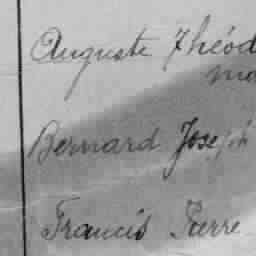 Auguste Théod
mo
Bernard Joseph
Francis Pierre